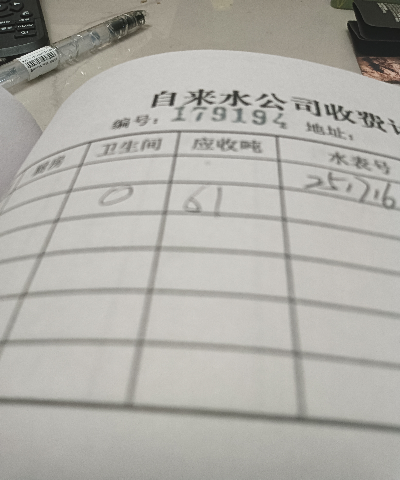 自来水公司收费
编号: 179194 地址:
厨房 卫生间 应收吨 水表号
251716
0 61